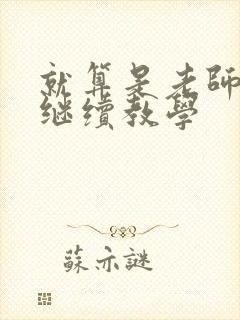 就算是老師
继續教學
蘇亦謎